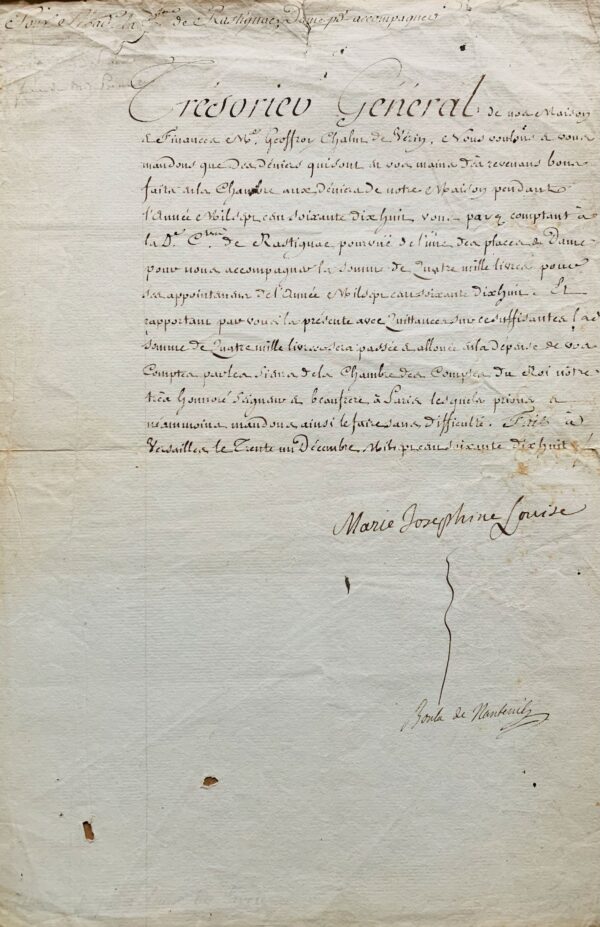 de Rastignac Dame pr. accompagner
Trésorier Général de nos Maison
& Finances Me. Geoffroy Chalut de Vérin, Nous voulons & vous
mandons que des deniers qui sont en vos mains des revenans bons
faits en la Chambre aux deniers de notre Maison pendant
l'Année Mil sept cent soixante dix huit vous payiez comptant à
la De. Ctesse. de Rastignac pourvüe de l'une des places de Dame
pour nous accompagner la somme de Quatre mille livres pour
ses appointemens de l'Année Mil sept cent soixante dix huit. Et
rapportant par vous la présente avec Quittance sur ce suffisante la de.
somme de Quatre mille livres sera passée & allouée en la dépense de vos
Comptes par les gens de la Chambre des Comptes du Roi nôtre
très honnoré Seigneur & beaufrere à Paris lesquels prions &
neanmoins mandons ainsi le faire sans difficulté. Fait à
Versailles le Trente un Décembre Mil sept cent soixante dix huit.
Marie Josephine Louise
Boula de Nanteuil